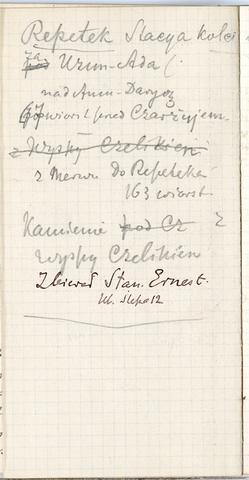 Repetek Stacya kolei
za
pod Uzun-Ada (
nad Amu-Daryą
60 wiorst przed Czarżujem
z Wyspy Czelekien
z Merwu do Repeteka
163 wiorst
Kamienie pod Cz z
wyspy Czelekien
Zbierał Stan. Ernest.
Ul. Ślepa 12